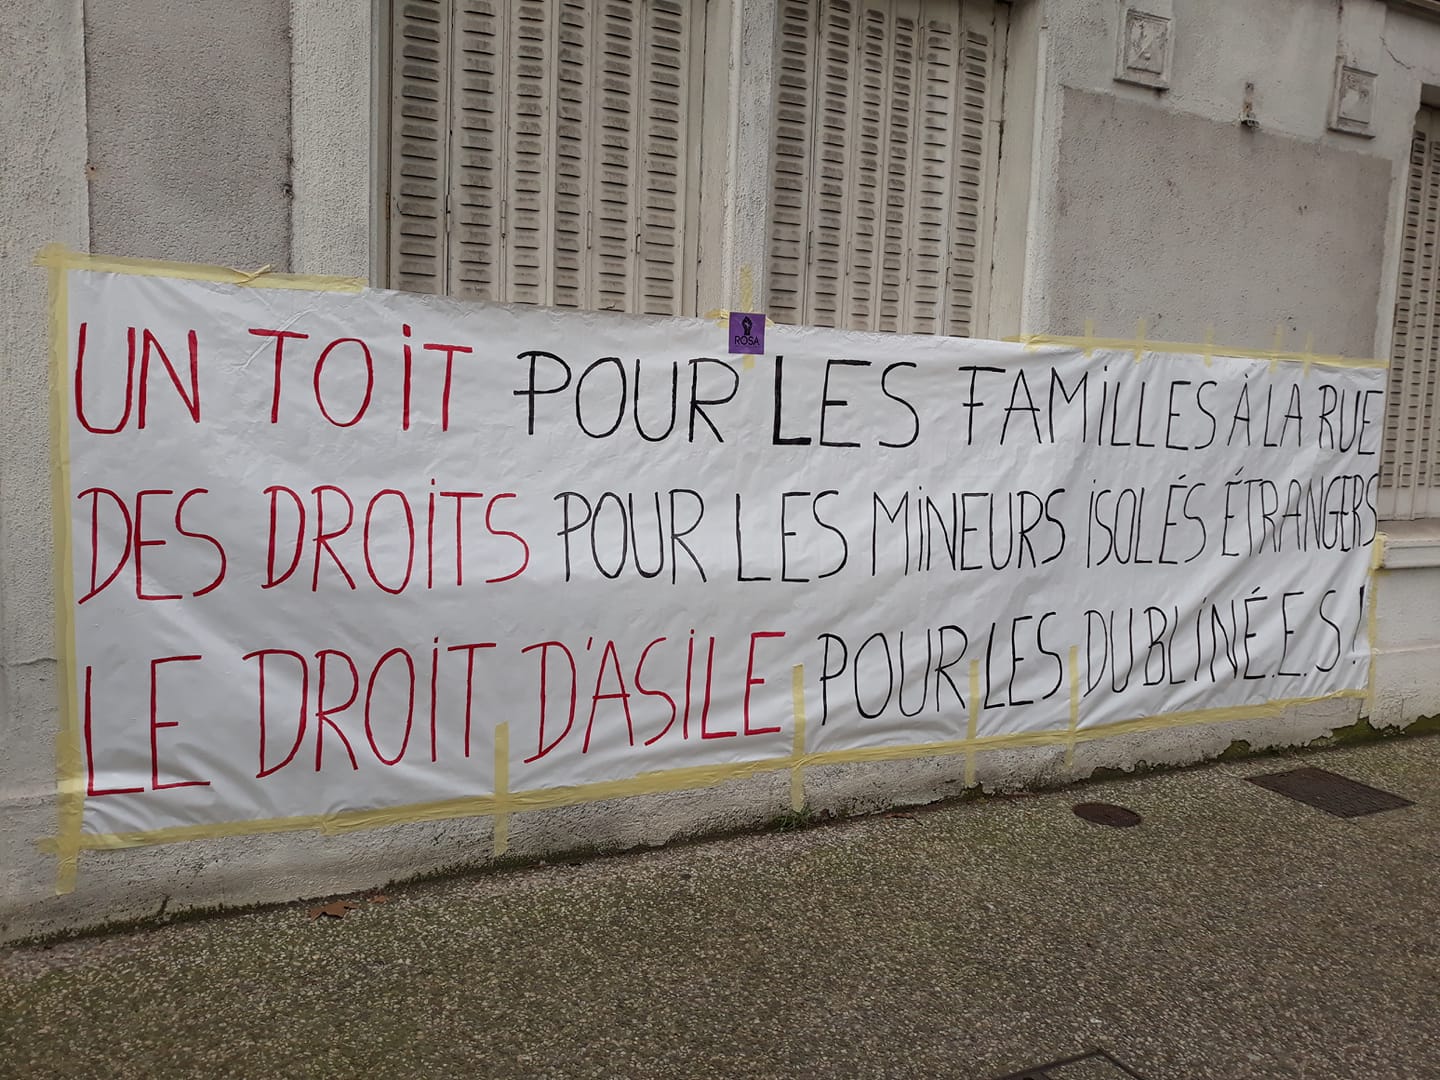 ROSA
UN TOiT POUR LES FAMiLLES À LA RUE
DES DROiTS POUR LES MiNEURS iSOLÉS ÉTRANGERS
LE DROiT D'ASiLE POUR LES DUBLiNÉ.E.S!